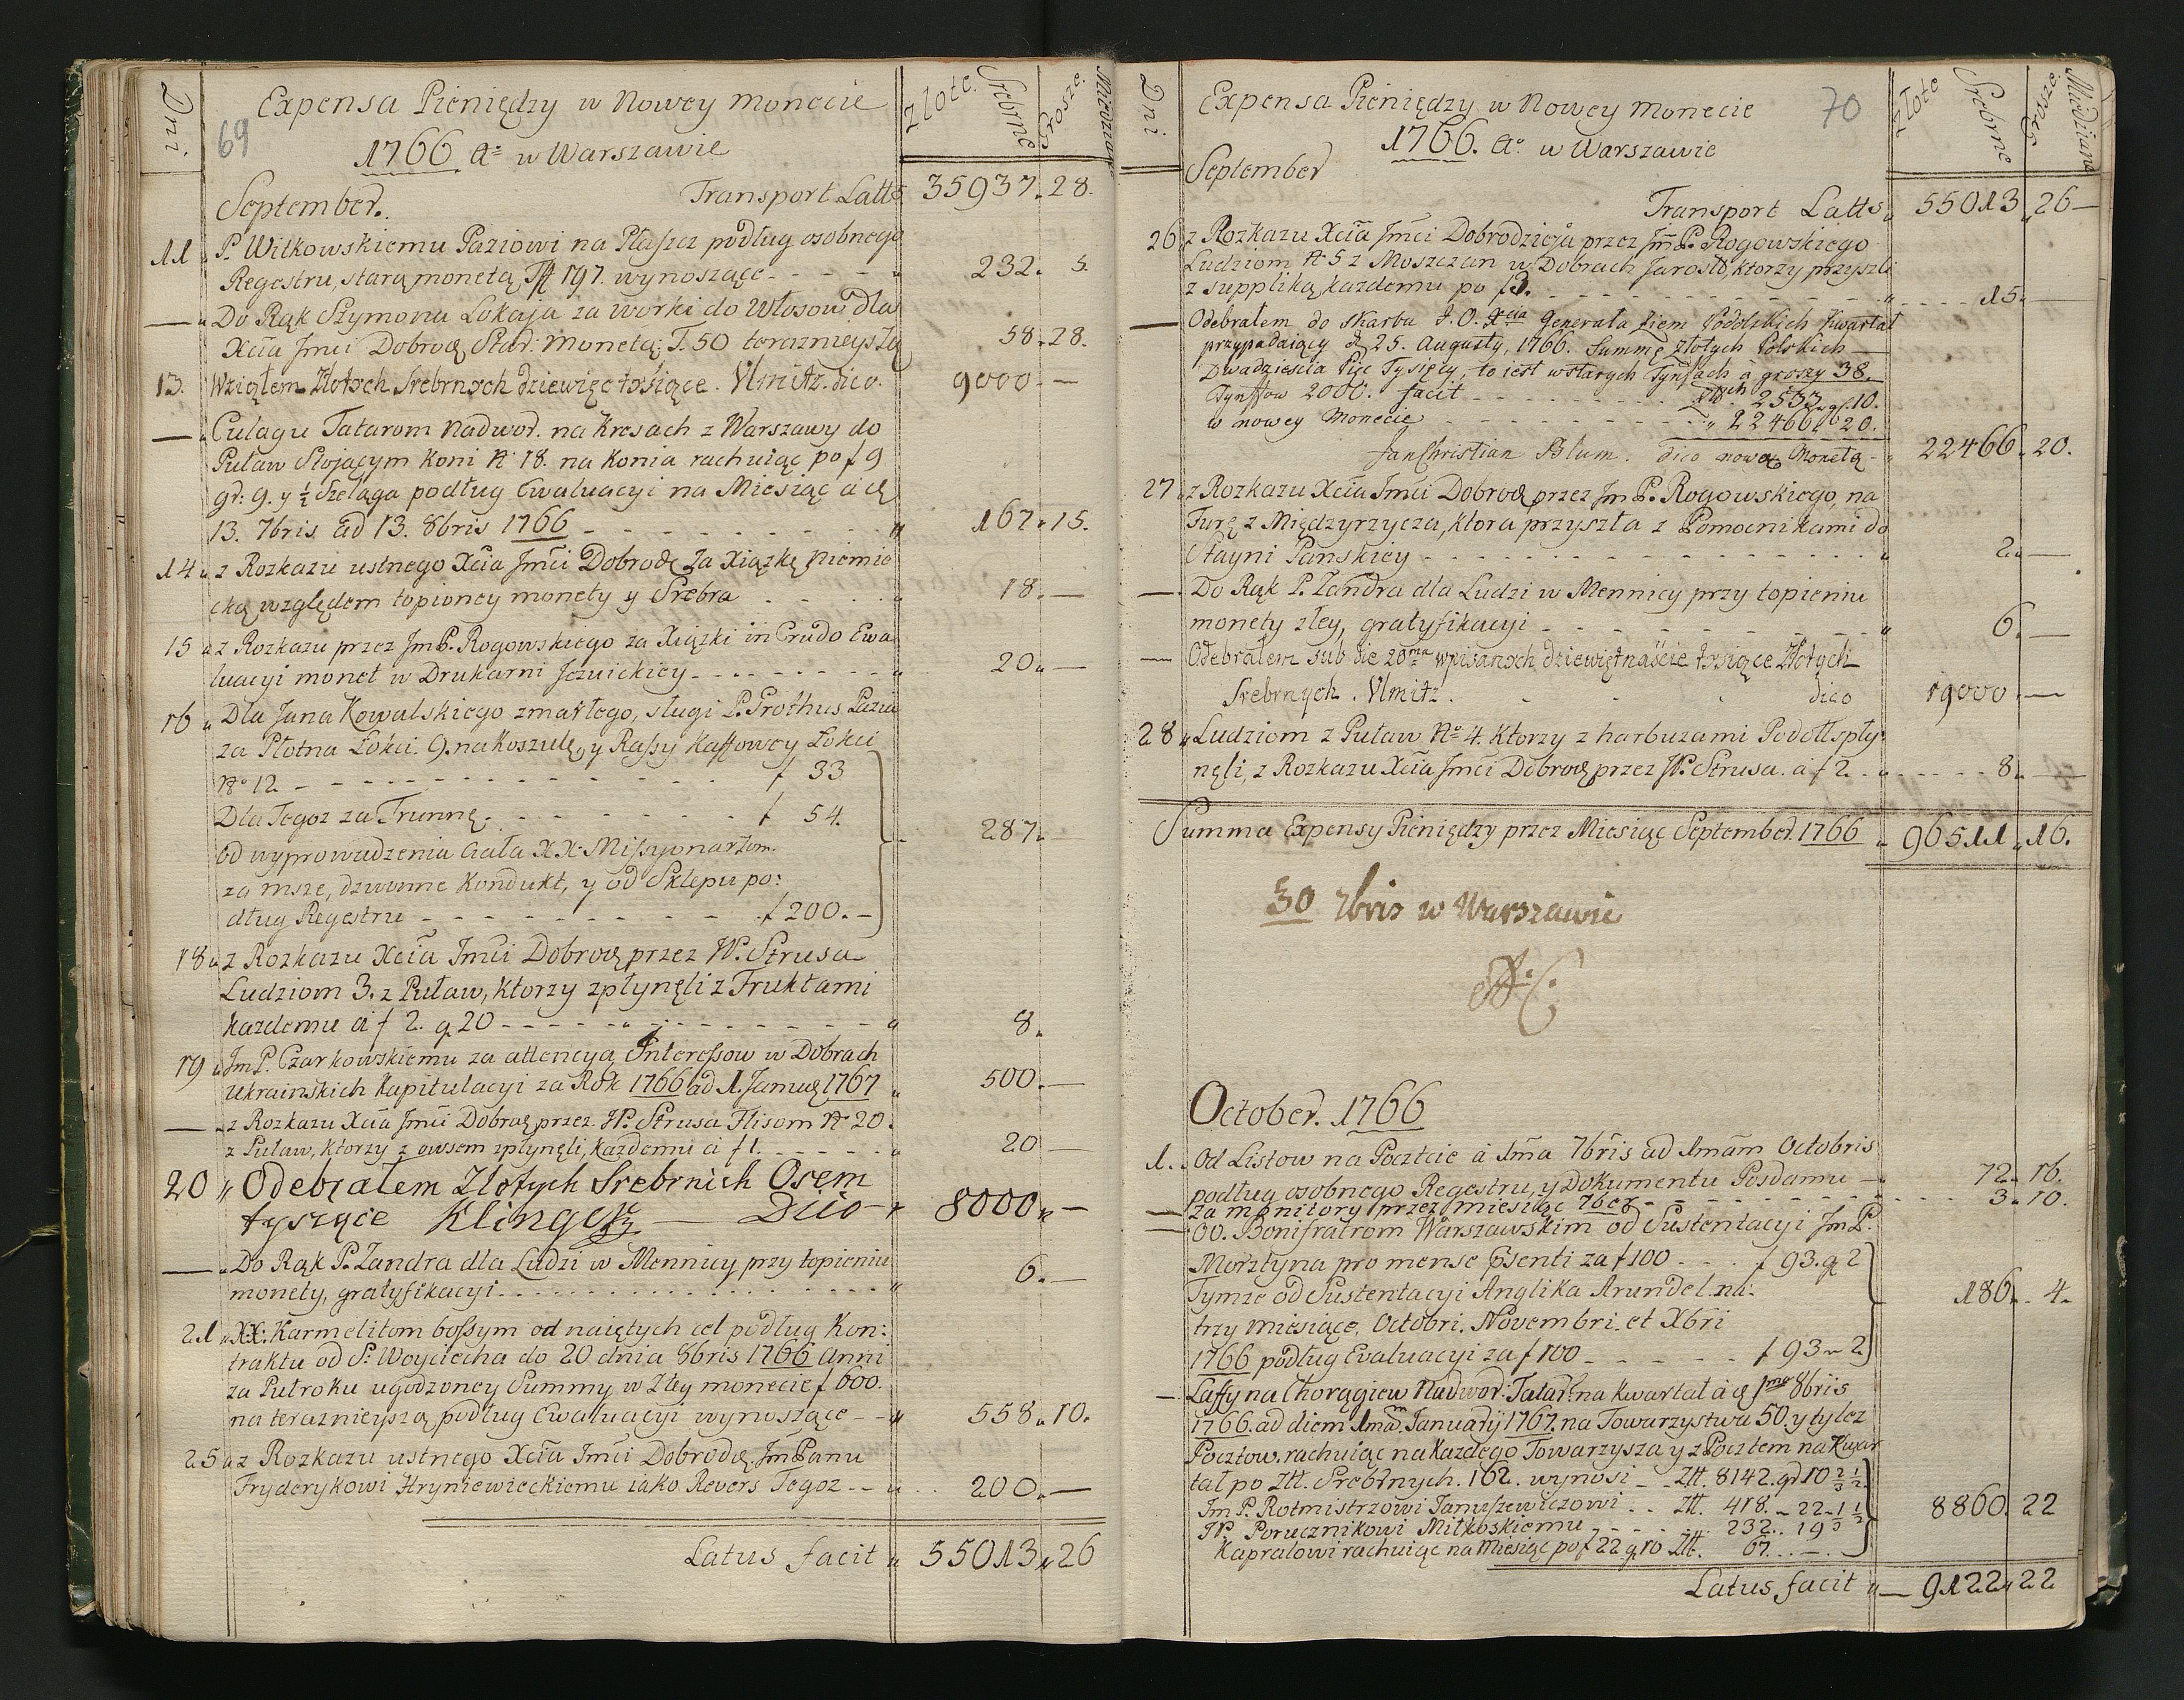 Dni
69
Expensa Pieniędzy w Nowey Monecie
1766 Aº w Warszawie
Złote Srebrne
Grosze Miedziane
September.
Transport Latts 35937 „ 28.
11 „ P. Witkowskiemu Paziowi na Płaszcz podług osobnego
Regestru, starą monetą 797. wynoszące - - - „ 232 „ 5.
— „ Do Rąk Szymona Lokaja za worki do Włosow dla
Xcia Jmci Dobrod. Star: Monetą f. 50 teraznieyszą 58 „ 28.
13. Wziąłem Złotych Srebrnych dziewięc tysiące. Ulmitz. dico. 9000 „ —
— „ Culagu Tatarom Nadwor. na Kresach z Warszawy do
Puław Stojącym Koni Nº 18. na Konia rachuiąc po f 9
gr: 9. y ½ Szeląga podług Ewaluacyi na Miesiąc a d.
13. 7bris ad 13. 8bris 1766 - - - „ 167 „ 15.
14 „ z Rozkazu ustnego Xcia Jmci Dobrod. Za Xiązkę Niemie
cką względem topioney monety y Srebra - - - „ 18 „ —
15 „ z Rozkazu przez JmP. Rogowskiego za Xiązki in Crudo Ewa
luacyi monet w Drukarni Jezuickiey - - - „ 20 „ —
16 „ Dla Jana Kowalskiego zmarłego, sługi P. Prothus Pazia
za Płotna Łokci. 9. na Koszulę, y Rassy Kaffowey Łokci
Nº 12 - - - f 33
Dla Tegoz za Trunnę - - - f 54.
od wyprowadzenia Ciała XX. Missyonarzom.
za msze, dzwonne Kondukt, y od Sklepu po:
dług Regestru - - - f 200. — 287 „
18 „ z Rozkazu Xcia Jmci Dobrod. przez W. Strusa
Ludziom 3. z Puław, Ktorzy zpłynęli z Fruktami
Kazdemu a f 2. g 20 - - - „ 8 „
19 „ JmP. Czarkowskiemu za attencyą Interessow w Dobrach
Ukrainskich Kapitulacyi za Rok 1766 ad 1. Januar. 1767 „ 500 „ —
— „ z Rozkazu Xcia Jmci Dobrod. przez W. Strusa Flisom Nº 20.
z Puław, Ktorzy z owsem zpłynęli, Kazdemu a f 1. - - - „ 20 —
20 „ Odebrałem Złotych Srebrnich Osem
tyszące Klinger — Dico „ 8000 „ —
— „ Do Rąk P. Zandra dla Ludzi w Mennicy przy topieniu
monety, gratyfikacyi - - - „ 6 „ —
21 „ XX. Karmelitom bossym od naiętych cel podług Kon:
traktu od S. Woyciecha do 20 dnia 8bris 1766 Anni
za Pułroku ugodzoney Summy w Złey monecie f 600.
na teraznieyszą, podług Ewaluacyi wynoszące - - „ 558 „ 10.
25 „ z Rozkazu ustnego Xcia Jmci Dobrod. JmPanu
Fryderykowi Hryniewieckiemu iako Revers Tegoz - - „ 200 „ —
Latus facit „ 55013 „ 26
Dni
Expensa Pieniędzy w Nowey Monecie
70
1766. Aº w Warszawie
Złote Srebrne
Grosze Miedziane
September
Transport Latts „ 55013 „ 26 —
26 „ z Rozkazu Xcia Jmci Dobrodzieja przez JmP. Rogowskiego
Ludziom Nº 5 z Moszczan w Dobrach Jarosł., ktorzy przyszli
z suppliką kazdemu po f 3. - - - „ 15 „ —
— Odebrałem do skarbu J. O. Xcia Generała Ziem Podolskich kwartał
przypadaiący d. 25. Augusty, 1766. Summę złotych Polskich —
Dwadziescia Pięc Tysięcy, to iest w starych Tynfach a groszy 38.
Tynffow 2000. facit - - - 2533 „ gr. 10.
w nowey Monecie - - - „ 22466 „ 20.
Jan Christian Blum. dico nową Monetą - „ 22466 „ 20.
27 „ z Rozkazu Xcia Jmci Dobrod. przez JmP. Rogowskiego, na
Furę z Międzyrzycza, Ktora przyszła z Pomocnikami do
Stayni Panskiey - - - „ 2 „ —
— „ Do Rąk P. Zandra dla Ludzi w Mennicy przy topieniu
monety złey, gratyfikacyi - - - „ 6 „ —
— Odebrałem sub die 20ma wpisanych dziewiętnaście tysiące Złotych
Srebrnych. Ulmitz. dico 19000 „ —
28 „ Ludziom z Puław Nº 4. Ktorzy z harbuzami Podott spły
nęli, z Rozkazu Xcia Jmci Dobrod. przez W. Strusa. a f 2. „ 8 „ —
Summa Expensy Pieniędzy przez Miesiąc September. 1766 „ 96511 „ 16.
30 7bris w Warszawie
October. 1766
1. „ Od Listow na Poczcie a 1ma 7bris ad 1mam Octobris
podług osobnego Regestru, y Dokumentu Posdamu - „ 72 „ 16.
— Za monitory przez miesiąc 7ber - - - 3 „ 10.
— OO. Bonifratrom Warszawskim od Sustentacyi JmP.
Morsztyna pro mense psenti za f 100 - - f 93. g 2
Tymze od Sustentacyi Anglika Arundel. na:
trzy miesiące, Octobri. Novembri. et Xbri
1766 podług Evaluacyi za f 100 - - - f 93 „ 2 186 „ 4.
— Laffy na Chorągiew Nadwor: Tatar: na Kwartał a d. 1ma 8bris
1766. ad diem 1mam Januarij 1767. na Towarzystwa 50. y tylez
Pocztow, rachuiąc na Kazdego Towarzysza y z Pocztem na Kwar
tał po Złt. Srebrnych. 162. wynosi - - Złt. 8142. gr 10 ⅔ ½
JmP. Rotmistrzowi Januszewiczowi - - Złt. 418. „ 22 „ 1 ½
W. Porucznikowi Mitkoskiemu - - - 232 „ 19
Kapralowi rachuiąc na Miesiąc po f 22 g 10 Złt. 67. — 8860. 22
Latus facit „ 9122 „ 22